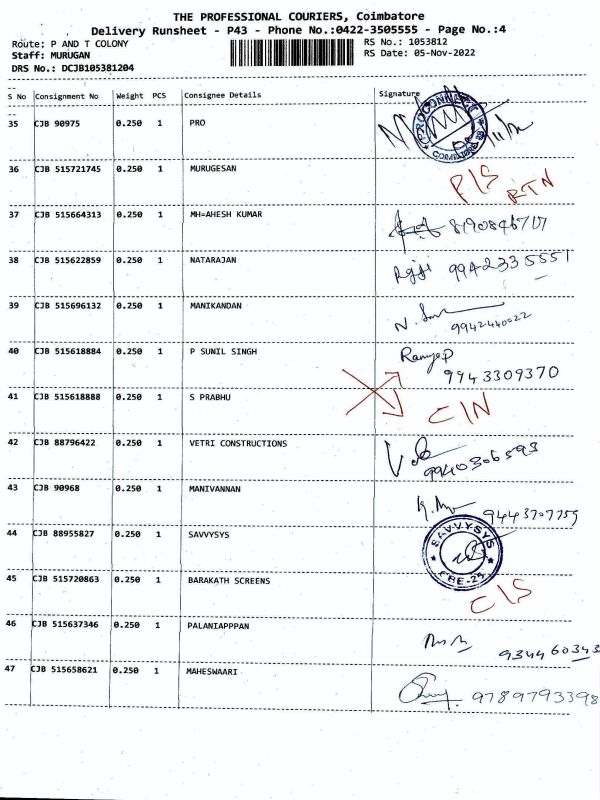 THE PROFESSIONAL COURIERS, Coimbatore
Delivery Runsheet - P43 - Phone No.:0422-3505555 - Page No.:4
Route: P AND T COLONY
RS No.: 1053812
Staff: MURUGAN
RS Date: 05-Nov-2022
DRS No.: DCJB105381204
S No Consignment No Weight PCS Consignee Details Signature
35 CJB 90975 0.250 1 PRO
PROCONNECT
36 CJB 515721745 0.250 1 MURUGESAN P/S RTN
37 CJB 515664313 0.250 1 MH=AHESH KUMAR
38 CJB 515622859 0.250 1 NATARAJAN 9942335551
39 CJB 515696132 0.250 1 MANIKANDAN 9942440022
40 CJB 515618884 0.250 1 P SUNIL SINGH Ramya P
9943309370
41 CJB 515618888 0.250 1 S PRABHU C/N
42 CJB 88796422 0.250 1 VETRI CONSTRUCTIONS 9940306593
43 CJB 90968 0.250 1 MANIVANNAN 9443707759
44 CJB 88955827 0.250 1 SAVVYSYS SAVVYSYS
CBE-25
45 CJB 515720863 0.250 1 BARAKATH SCREENS C/S
46 CJB 515637346 0.250 1 PALANIAPPPAN 934460343
47 CJB 515658621 0.250 1 MAHESWAARI 9789793398